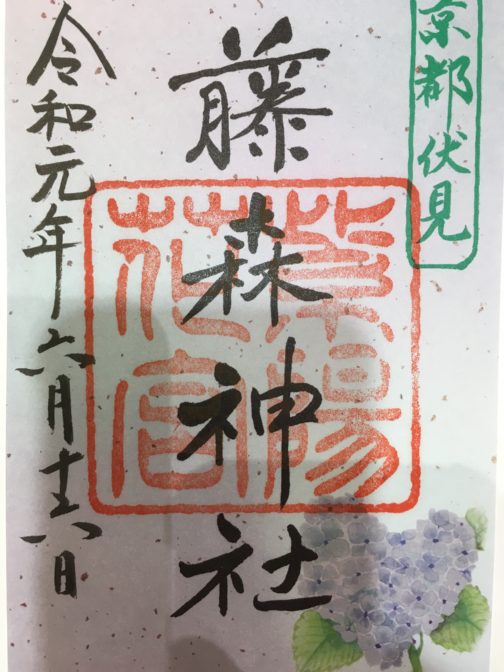 京都伏見
藤森神社
紫陽花宮
令和元年六月十六日